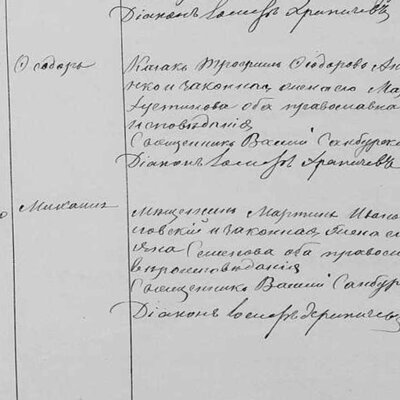 Діаконъ Іосифъ Храпичевъ
Ѳеодоръ
Казакъ Трофимъ Ѳеодоровъ
и законная жена его
Іустинова оба православнаго
исповѣданія
Священникъ Василій Самбурск
Діаконъ Іосифъ Храпичевъ
Михаилъ
Мѣщанинъ Мартинъ Ивано
и законная жена е
Семенова оба правос
исповѣданія
Священникъ Василій Самбур
Діаконъ Іосифъ Храпичевъ